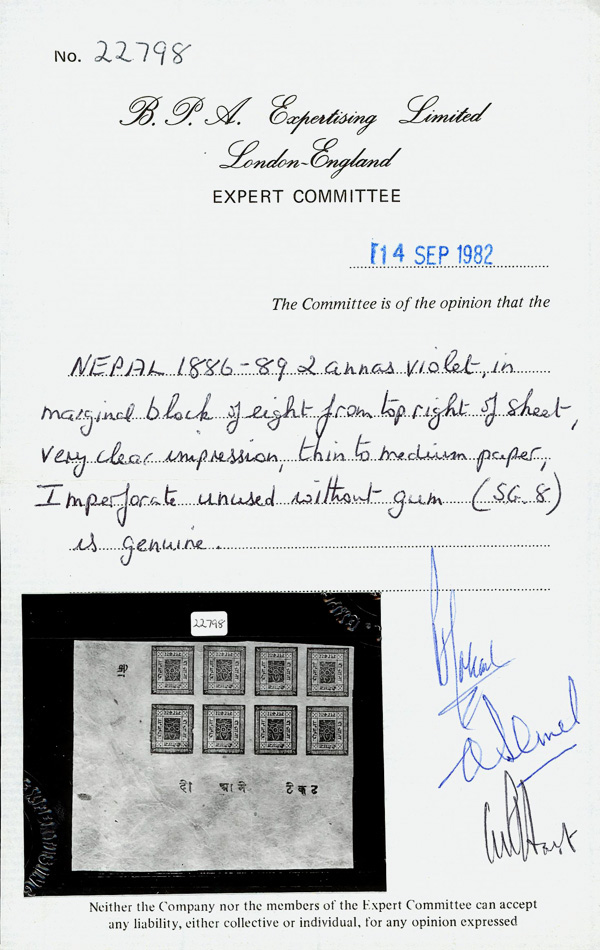 No. 22798
B. P. A. Expertising Limited
London-England
EXPERT COMMITTEE
14 SEP 1982
The Committee is of the opinion that the
NEPAL 1886-89 2 annas violet, in
marginal block of eight from top right of sheet,
very clear impression, thin to medium paper,
Imperforate unused without gum (SG.8)
is genuine.
22798
दो आने टिकट
Neither the Company nor the members of the Expert Committee can accept
any liability, either collective or individual, for any opinion expressed